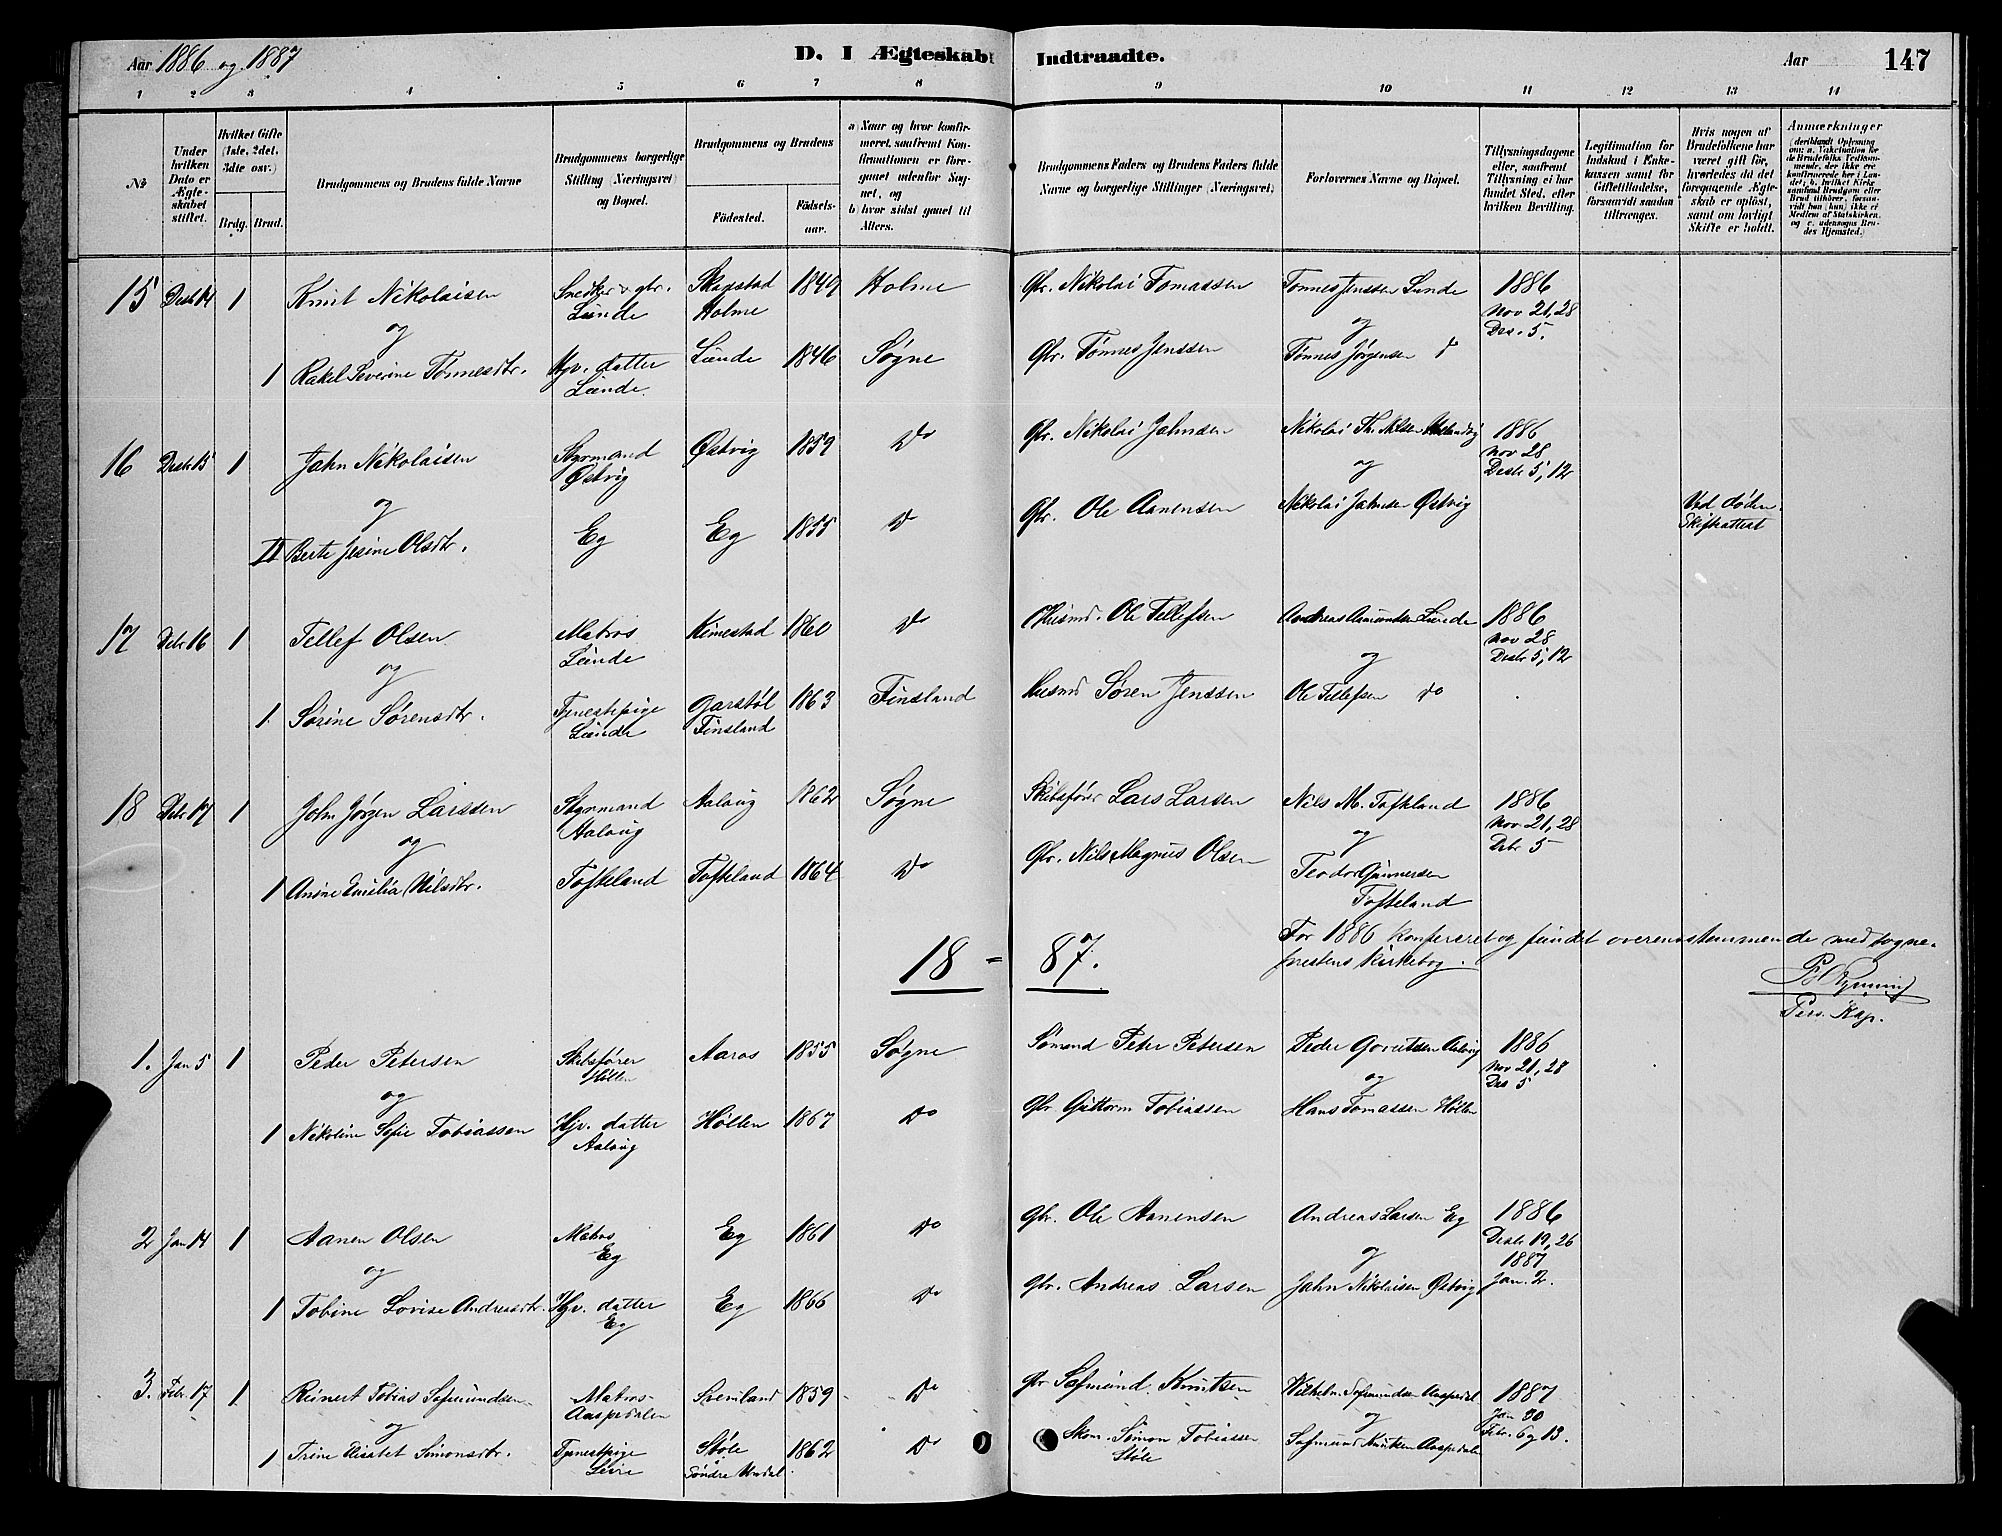 Aar 1886 og 1887
D. I Ægteskab Indtraadte.
Aar
147
1 2 3 4 5 6 7 8 9 10 11 12 13 14
No
Under hvilken Dato er Ægteskabet stiftet.
Hvilket Gifte (1ste, 2det, 3die osv.)
Brdg. Brud.
Brudgommens og Brudens fulde Navne
Brudgommens borgerlige Stilling (Næringsvei) og Bopæl.
Brudgommens og Brudens
Födested.
Födselsaar.
a) Naar og hvor konfirmeret, saafremt Konfirmationen er foregaaet udenfor Sognet, og
b) hvor sidst gaaet til Alters.
Brudgommens Faders og Brudens Faders fulde Navne og borgerlige Stillinger (Næringsvei)
Forlovernes Navne og Bopæl.
Tillysningsdagene eller, saafremt Tillysning ei har fundet Sted, efter hvilken Bevilling.
Legitimation for Indskud i Enkekassen samt for Giftetilladelse, forsaavidt saadan tiltrænges.
Hvis nogen af Brudefolkene har været gift för, hvorledes da det foregaaende Ægteskab er oplöst, samt om lovligt Skifte er holdt.
Anmærkninger
15 Desbr 14 1 Knut Nikolaisen Snedker & gbr. Lunde Skagstad Holme 1849 Holme Gbr. Nikolai Tomassen Tønnes Jenssen Lunde 1886 Nov 21, 28 Des. 5.
og
1 Rakel Severine Tønnesdtr. Hjv. datter Lunde. Lunde 1846 Søgne Gbr. Tønnes Jenssen Tønnes Jørgensen do
16 Desbr 15 1 Jahn Nikolaisen Styrmand Østvig Østvig 1859 Do Gbr. Nikolai Jahnsen Nikolai Th. Nilsen 1886 Nov 28 Desbr 5, 12
og
II Berte Jesine Olsdtr. Eg Eg 1855 Do Gbr. Ole Aanensen Nikolai Jahnsen Østvig Ved døden. Skifteattest
17 Debr 16 1 Tellef Olsen Matros Lunde Kimestad 1860 Do Husmd. Ole Tellefsen Andreas Aamundsen Lunde 1886 Nov 28 Desbr 5, 12
og
1. Sørine Sørensdtr. Tjenestepige Lunde Garstøl Finsland 1863 Finsland Husmd Søren Jenssen Ole Tellefsen do
18 Debr 17 1 John Jørgen Larssen Styrmand Aalaug Aalaug 1862 Søgne Skibsfører Lars Larsen Nils M. Toftland 1886 Nov 21, 28 Debr 5
og
1 Anine Emilia Nilsdtr. Tofteland Tofteland 1864 Do Gbr. Nils Magnus Olsen Teodor Gunnersen Tofteland
18 - 87.
For 1886 konfereret og fundet overensstemmende med sogneprestens kirkebog.
Pers. Kap.
1. Jan 5 1 Peder Petersen Skibsfører Høllen Aaros 1855 Søgne Sømand Peter Petersen Peder Gorutsen Aalvig 1886 Nov 21, 28 Des 5
og
1 Nikoline Sofie Tobiassen Hjv. datter Aalaug Høllen 1867 Do Gbr Guttorm Tobiassen Hans Tomassen Høllen
2 Jan 14 1 Aanen Olsen Matros Eg Eg 1861 Do Gbr. Ole Aanensen Andreas Larsen Eg 1886 Desbr 19, 26 1887 Jan. 2.
og
1 Tobine Lovise Andreasdtr. Hjv. datter Eg Eg 1866 Do Gbr. Andreas Larsen Jahn Nikolaisen Østvig
3. Febr. 17 1 Reinert Tobias Sofmundsen Matros Aaspedalen 1859 Do Gbr Sofmund Knutsen Wilhelm Sofmundsen Aaspedal 1887 Jan 30 Febr. 6 og 13.
og
1 Trine Elisabet Simonsdtr. Tjenestpige Støle Søndre Undal. 1862 Do Skom. Simon Tobiassen Støle Sofmund Knutsen Aaspedalen